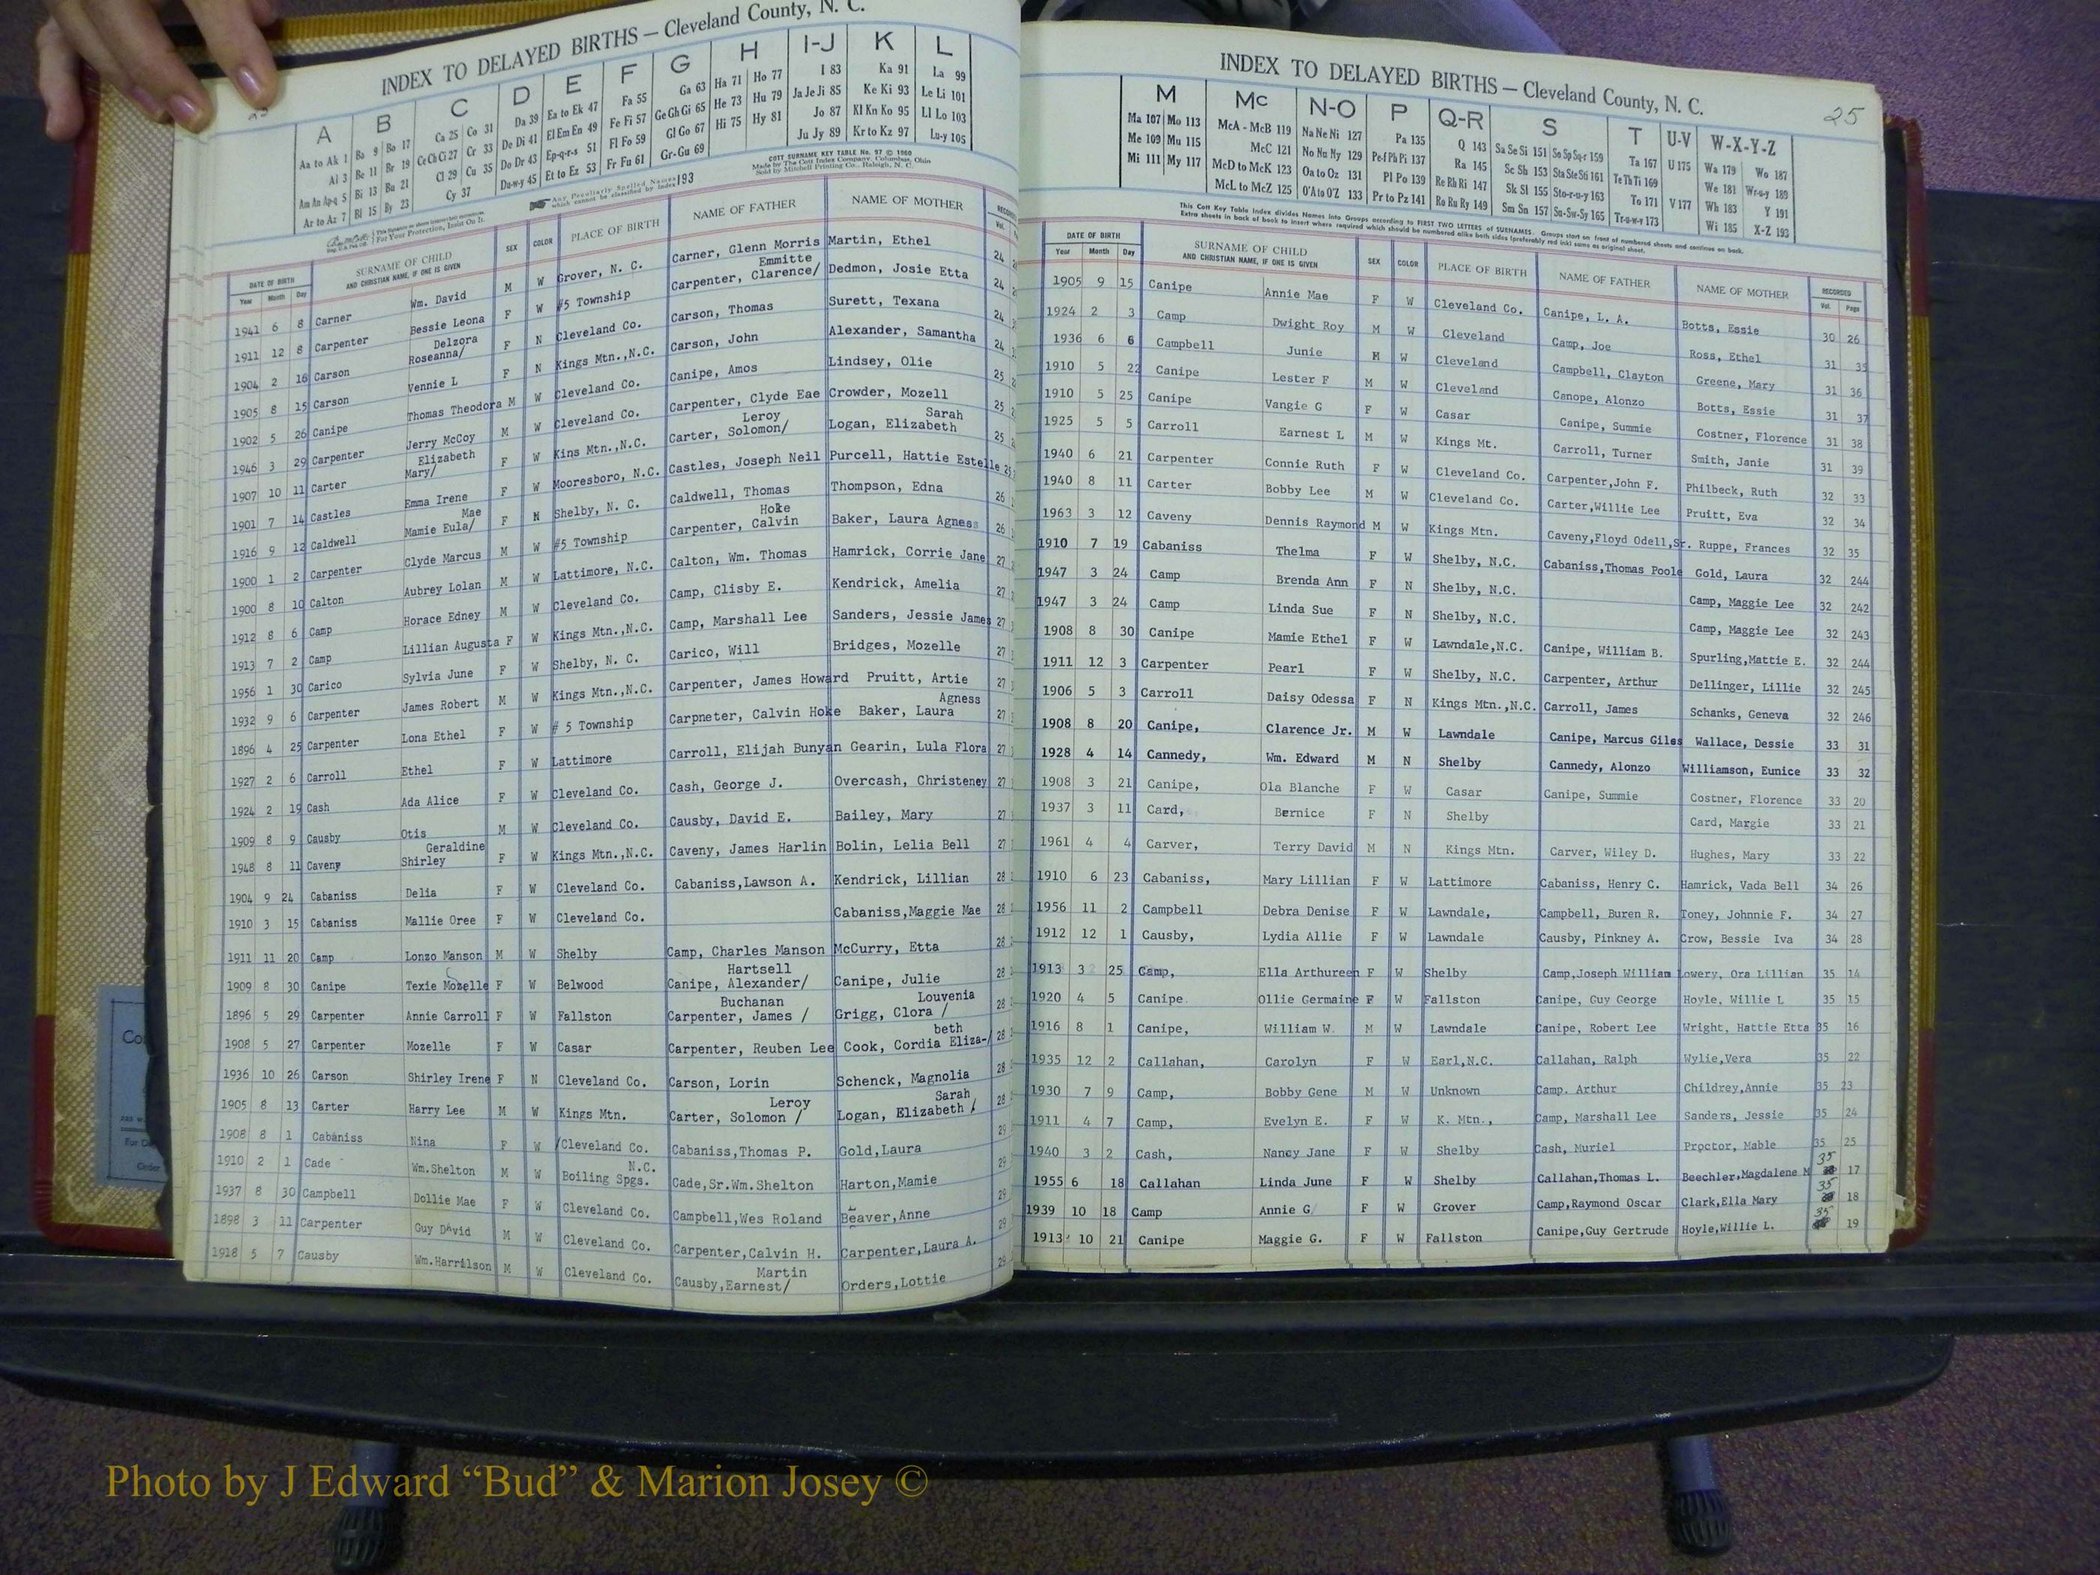 INDEX TO DELAYED BIRTHS — Cleveland County, N. C.
A B C D E F G H I-J K L
Aa to Ak 1 Ba 9 Bo 17 Ca 25 Co 31 Da 39 Ea to Ek 47 Fa 55 Ga 63 Ha 71 Ho 77 I 83 Ka 91 La 99
Al 3 Be 11 Br 19 Ce Ch Ci 27 Cr 33 De Di 41 El Em En 49 Fe Fi 57 Ge Gh Gi 65 He 73 Hu 79 Ja Je Ji 85 Ke Ki 93 Le Li 101
Am An Ap-q 5 Bi 13 Bu 21 Cl 29 Cu 35 Do Dr 43 Ep-q-r-s 51 Fl Fo 59 Gl Go 67 Hi 75 Hy 81 Jo 87 Kl Kn Ko 95 Ll Lo 103
Ar to Az 7 Bl 15 By 23 Cy 37 Du-w-y 45 Et to Ez 53 Fr Fu 61 Gr-Gu 69 Ju Jy 89 Kr to Kz 97 Lu-y 105
COTT SURNAME KEY TABLE No. 97 © 1960
Made by The Cott Index Company, Columbus, Ohio
Sold by Mitchell Printing Co., Raleigh, N. C.
Any Peculiarly Spelled Names which cannot be classified by Index 193
DATE OF BIRTH Year Month Day SURNAME OF CHILD AND CHRISTIAN NAME, IF ONE IS GIVEN SEX COLOR PLACE OF BIRTH NAME OF FATHER NAME OF MOTHER
1941 6 8 Garner Wm. David M W Grover, N. C. Carner, Glenn Morris Martin, Ethel 24
1911 12 8 Carpenter Bessie Leona F W #5 Township Carpenter, Clarence/ Emmitte Dedmon, Josie Etta 24
1904 2 16 Carson Roseanna/ Delzora F N Cleveland Co. Carson, Thomas Surett, Texana 24
1905 8 15 Carson Vennie L F N Kings Mtn.,N.C. Carson, John Alexander, Samantha 24
1902 5 26 Canipe Thomas Theodora M W Cleveland Co. Canipe, Amos Lindsey, Olie 25
1946 3 29 Carpenter Jerry McCoy M W Cleveland Co. Carpenter, Clyde Eae Crowder, Mozell 25
1907 10 11 Carter Mary/ Elizabeth F W Kins Mtn.,N.C. Carter, Solomon/ Leroy Logan, Elizabeth Sarah 25
1901 7 14 Castles Emma Irene F W Mooresboro, N.C. Castles, Joseph Neil Purcell, Hattie Estelle 25
1916 9 12 Caldwell Mamie Eula/ Mae F N Shelby, N. C. Caldwell, Thomas Thompson, Edna 26
1900 1 2 Carpenter Clyde Marcus M W #5 Township Carpenter, Calvin Hoke Baker, Laura Agness 26
1900 8 10 Calton Aubrey Lolan M W Lattimore, N.C. Calton, Wm. Thomas Hamrick, Corrie Jane 27
1912 8 6 Camp Horace Edney M W Cleveland Co. Camp, Clisby E. Kendrick, Amelia 27
1913 7 2 Camp Lillian Augusta F W Kings Mtn.,N.C. Camp, Marshall Lee Sanders, Jessie James 27
1956 1 30 Carico Sylvia June F W Shelby, N. C. Carico, Will Bridges, Mozelle 27
1932 9 6 Carpenter James Robert M W Kings Mtn.,N.C. Carpenter, James Howard Pruitt, Artie 27
1896 4 25 Carpenter Lona Ethel F W # 5 Township Carpneter, Calvin Hoke Baker, Laura Agness 27
1927 2 6 Carroll Ethel F W Lattimore Carroll, Elijah Bunyan Gearin, Lula Flora 27
1924 2 19 Cash Ada Alice F W Cleveland Co. Cash, George J. Overcash, Christeney 27
1909 8 9 Causby Otis M W Cleveland Co. Causby, David E. Bailey, Mary 27
1948 8 11 Caveny Shirley Geraldine F W Kings Mtn.,N.C. Caveny, James Harlin Bolin, Lelia Bell 27
1904 9 24 Cabaniss Delia F W Cleveland Co. Cabaniss,Lawson A. Kendrick, Lillian 28
1910 3 15 Cabaniss Mallie Oree F W Cleveland Co. Cabaniss,Maggie Mae 28
1911 11 20 Camp Lonzo Manson M W Shelby Camp, Charles Manson McCurry, Etta 28
1909 8 30 Canipe Texie Mozelle F W Belwood Canipe, Alexander/ Hartsell Canipe, Julie 28
1896 5 29 Carpenter Annie Carroll F W Fallston Carpenter, James / Buchanan Grigg, Clora / Louvenia 28
1908 5 27 Carpenter Mozelle F W Casar Carpenter, Reuben Lee Cook, Cordia Eliza-/ beth 28
1936 10 26 Carson Shirley Irene F N Cleveland Co. Carson, Lorin Schenck, Magnolia 28
1905 8 13 Carter Harry Lee M W Kings Mtn. Carter, Solomon / Leroy Logan, Elizabeth / Sarah 28
1908 8 1 Cabaniss Nina F W Cleveland Co. Cabaniss,Thomas P. Gold,Laura 29
1910 2 1 Cade Wm.Shelton M W Boiling Spgs. N.C. Cade,Sr.Wm.Shelton Harton,Mamie 29
1937 8 30 Campbell Dollie Mae F W Cleveland Co. Campbell,Wes Roland Beaver,Anne 29
1898 3 11 Carpenter Guy David M W Cleveland Co. Carpenter,Calvin H. Carpenter,Laura A. 29
1918 5 7 Causby Wm.Harrilson M W Cleveland Co. Causby,Earnest/ Martin Orders,Lottie 29
INDEX TO DELAYED BIRTHS — Cleveland County, N. C. 25
M Mc N-O P Q-R S T U-V W-X-Y-Z
Ma 107 Mo 113 McA - McB 119 Na Ne Ni 127 Pa 135 Q 143 Sa Se Si 151 So Sp Sq-r 159 Ta 167 U 175 Wa 179 Wo 187
Me 109 Mu 115 McC 121 No Nu Ny 129 Pe-f Ph Pi 137 Ra 145 Sc Sh 153 Sta Ste Sti 161 Te Th Ti 169 We 181 Wr-u-y 189
Mi 111 My 117 McD to McK 123 Oa to Oz 131 Pl Po 139 Re Rh Ri 147 Sk Sl 155 Sto-r-u-y 163 To 171 V 177 Wh 183 Y 191
McL to McZ 125 O'A to O'Z 133 Pr to Pz 141 Ro Ru Ry 149 Sm Sn 157 Su-Sw-Sy 165 Tr-u-w-y 173 Wi 185 X-Z 193
This Cott Key Table Index divides Names into Groups according to FIRST TWO LETTERS of SURNAMES. Groups start on front of numbered sheets and continue on back.
Extra sheets in back of book to insert where required which should be numbered alike both sides (preferably red ink) same as original sheet.
DATE OF BIRTH Year Month Day SURNAME OF CHILD AND CHRISTIAN NAME, IF ONE IS GIVEN SEX COLOR PLACE OF BIRTH NAME OF FATHER NAME OF MOTHER RECORDED Vol. Page
1905 9 15 Canipe Annie Mae F W Cleveland Co. Canipe, L. A. Botts, Essie 30 26
1924 2 3 Camp Dwight Roy M W Cleveland Camp, Joe Ross, Ethel 31 35
1936 6 6 Campbell Junie M W Cleveland Campbell, Clayton Greene, Mary 31 36
1910 5 22 Canipe Lester F M W Cleveland Canope, Alonzo Botts, Essie 31 37
1910 5 25 Canipe Vangie G F W Casar Canipe, Summie Costner, Florence 31 38
1925 5 5 Carroll Earnest L M W Kings Mt. Carroll, Turner Smith, Janie 31 39
1940 6 21 Carpenter Connie Ruth F W Cleveland Co. Carpenter,John F. Philbeck, Ruth 32 33
1940 8 11 Carter Bobby Lee M W Cleveland Co. Carter,Willie Lee Pruitt, Eva 32 34
1963 3 12 Caveny Dennis Raymond M W Kings Mtn. Caveny,Floyd Odell,Sr. Ruppe, Frances 32 35
1910 7 19 Cabaniss Thelma F W Shelby, N.C. Cabaniss,Thomas Poole Gold, Laura 32 244
1947 3 24 Camp Brenda Ann F N Shelby, N.C. Camp, Maggie Lee 32 242
1947 3 24 Camp Linda Sue F N Shelby, N.C. Camp, Maggie Lee 32 243
1908 8 30 Canipe Mamie Ethel F W Lawndale,N.C. Canipe, William B. Spurling,Mattie E. 32 244
1911 12 3 Carpenter Pearl F W Shelby, N.C. Carpenter, Arthur Dellinger, Lillie 32 245
1906 5 3 Carroll Daisy Odessa F N Kings Mtn.,N.C. Carroll, James Schanks, Geneva 32 246
1908 8 20 Canipe, Clarence Jr. M W Lawndale Canipe, Marcus Giles Wallace, Dessie 33 31
1928 4 14 Cannedy, Wm. Edward M N Shelby Cannedy, Alonzo Williamson, Eunice 33 32
1908 3 21 Canipe, Ola Blanche F W Casar Canipe, Summie Costner, Florence 33 20
1937 3 11 Card, Bernice F N Shelby Card, Margie 33 21
1961 4 4 Carver, Terry David M N Kings Mtn. Carver, Wiley D. Hughes, Mary 33 22
1910 6 23 Cabaniss, Mary Lillian F W Lattimore Cabaniss, Henry C. Hamrick, Vada Bell 34 26
1956 11 2 Campbell Debra Denise F W Lawndale, Campbell, Buren R. Toney, Johnnie F. 34 27
1912 12 1 Causby, Lydia Allie F W Lawndale Causby, Pinkney A. Crow, Bessie Iva 34 28
1913 3 25 Camp, Ella Arthureen F W Shelby Camp,Joseph William Lowery, Ora Lillian 35 14
1920 4 5 Canipe Ollie Germaine F W Fallston Canipe, Guy George Hoyle, Willie L 35 15
1916 8 1 Canipe, William W. M W Lawndale Canipe, Robert Lee Wright, Hattie Etta 35 16
1935 12 2 Callahan, Carolyn F W Earl,N.C. Callahan, Ralph Wylie,Vera 35 22
1930 7 9 Camp, Bobby Gene M W Unknown Camp. Arthur Childrey,Annie 35 23
1911 4 7 Camp, Evelyn E. F W K. Mtn., Camp, Marshall Lee Sanders, Jessie 35 24
1940 3 2 Cash, Nancy Jane F W Shelby Cash, Muriel Proctor, Mable 35 25
1955 6 18 Callahan Linda June F W Shelby Callahan,Thomas L. Beechler,Magdalene M 35 17
1939 10 18 Camp Annie G F W Grover Camp,Raymond Oscar Clark,Ella Mary 35 18
1913 10 21 Canipe Maggie G. F W Fallston Canipe,Guy Gertrude Hoyle,Willie L. 35 19
Photo by J Edward “Bud” & Marion Josey ©